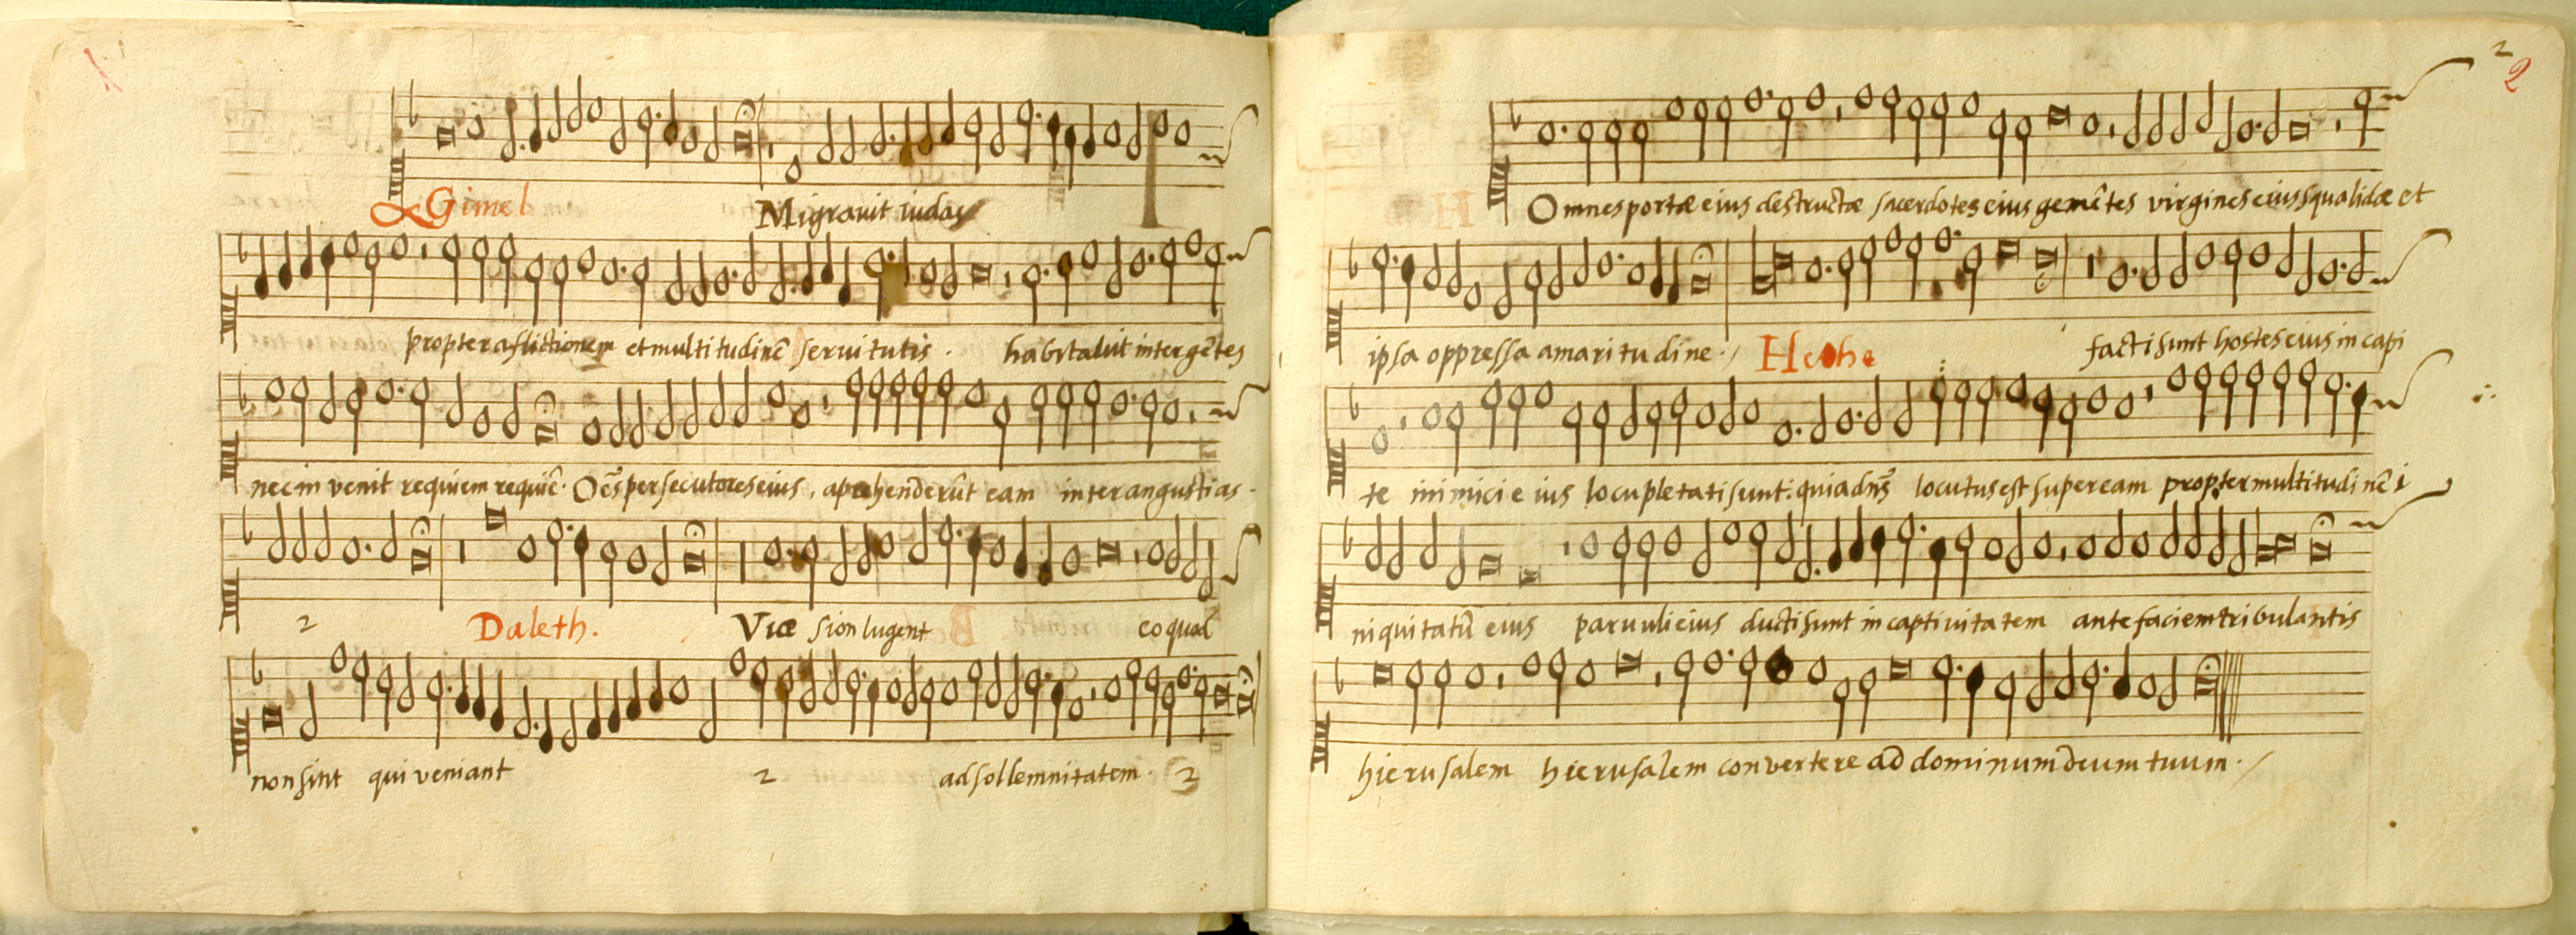 Gimel Migravit iudas
propter aflictionem et multitudinē servitutis . habitavit inter gētes
nec in venit requiem requiē . Oēs persecutores eius , aprehenderūt eam inter angustias .
2 Daleth . Viæ sion lugent eo quod
non sint qui veniant 2 ad sollemnitatem . 2
2
2
Omnes portæ eius destructæ sacerdotes eius gemētes virgines eius squalidæ et
ipsa oppressa amaritudine . / Hethe facti sunt hostes eius in capi
te inimici eius locupletati sunt : quia dn̄s locutus est super eam propter multitudinē i
niquitatū eius parvuli eius ducti sunt in captivitatem ante faciem tribulantis
hierusalem hierusalem convertere ad dominum deum tuum . /